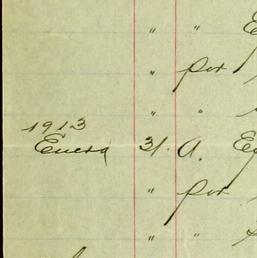 " "
" por
" "
1913
Enero 31. A.
" por
" "